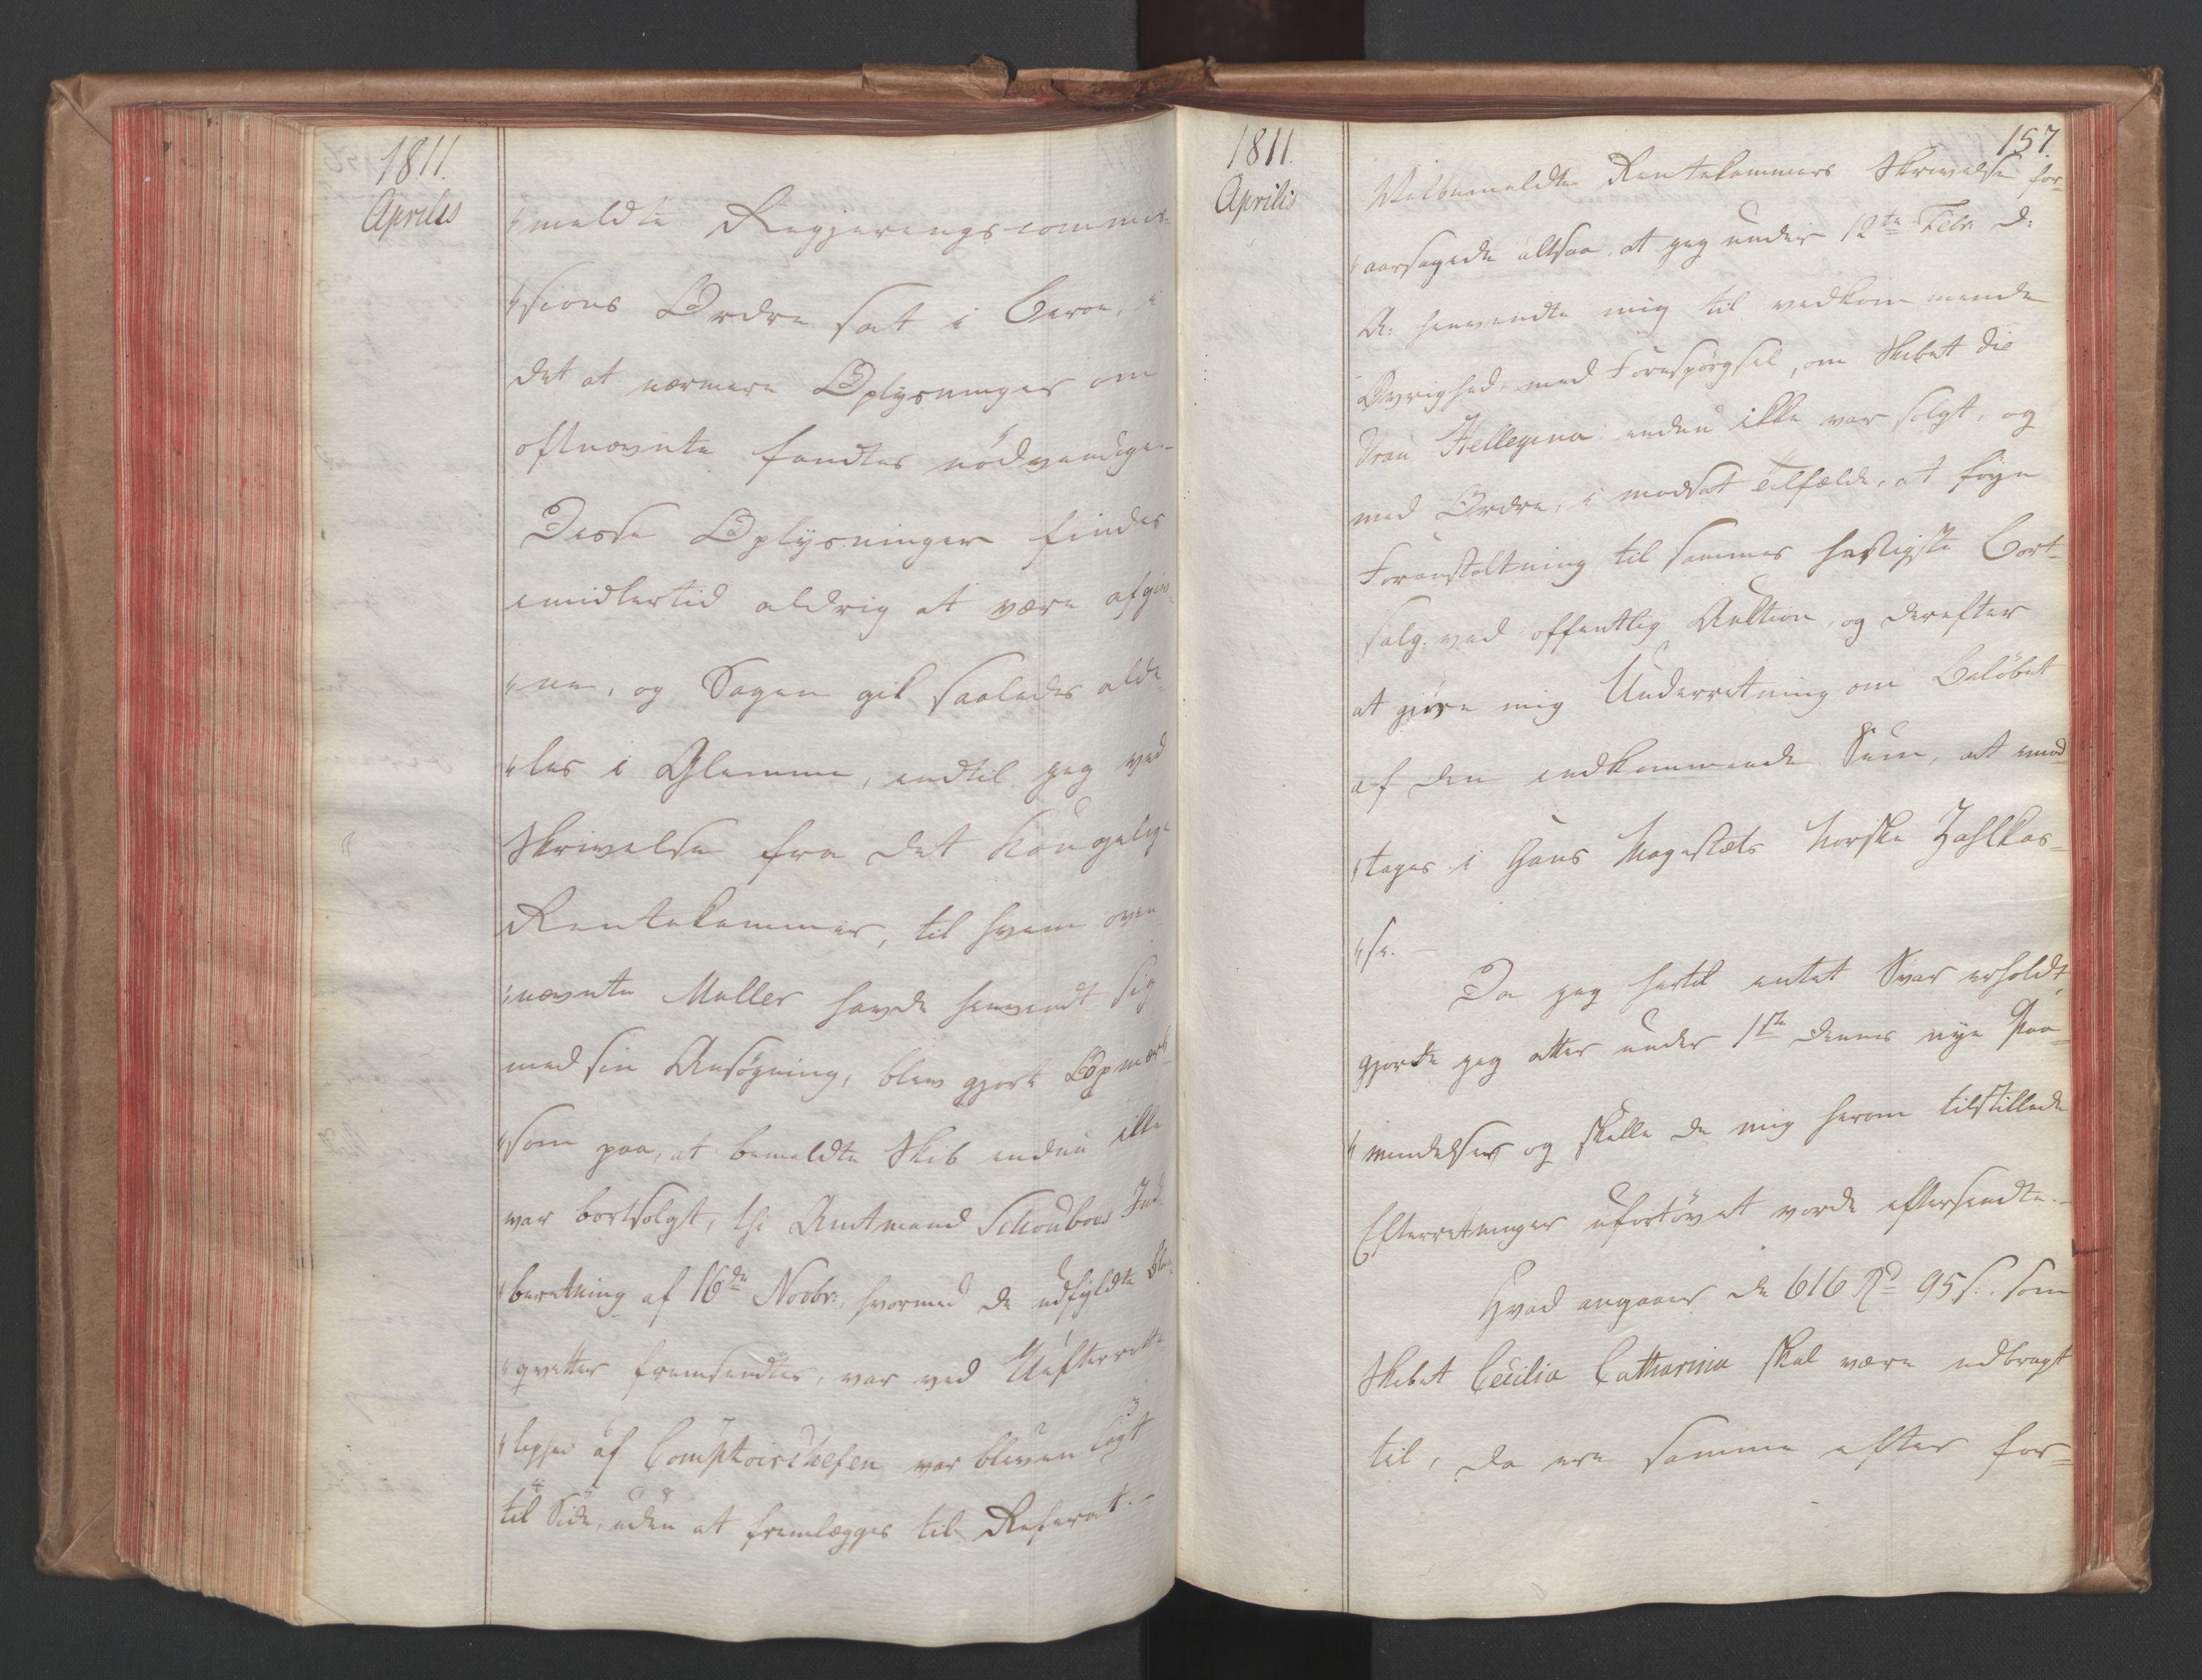 1811.
Aprilis
"meldte Regjeringscommis=
"sions Ordre sat i Beroe, i
det at nærmere Oplysninger om
oftnævnte fandtes nödvendige.-
Disse Oplysninger findes
imidlertid aldrig at være afgiv=
"ne, og Sagen gik saaledes alde=
"les i Glemme, indtil jeg ved
Skrivelse fra det Kongelige
Rentekammer, til hvem oven
"nævnte Muller havde henvendt sig
med sin Ansögning, blev gjort Opmærk=
"som paa, at bemeldte Skib endnu ikke
var bortsolgt, thi Amtmand Schouboes Ind=
"beretning af 16de Novbr:, hvormed de udfyldte Blan=
"qvetter fremsendtes, var ved Uefterrette=
"lighed af Comptoirchefen var bleven lagt
til Side, uden at fremlægges til Referat.-
1811.
Aprilis
157.
Velbemeldte Rentekammers Skrivelse for=
"aarsagede altsaa, at jeg under 12te Febr. d:
A: henvendte mig til vedkommende
Øvrighed, med Forespörgsel, om Skibet die
Frau Hellegina endnu ikke var solgt, og
med Ordre, i modsat Tilfælde, at föye
Foranstaltning til sammes hastigste Bort=
salg ved offentlig Auktion, og derefter
at give mig Underretning om Belöbet
af den indkommende Sum, at imod=
"tages i Hans Majestæts Norske Zahlkas=
"se.-
Da jeg hertil intet Svar erholdt,
gjorde jeg atter under 1ste dennes nye Paa=
"mindelser og skulle de mig herom tilstillede
Efterretninger ufortövet vorde eftersendte.-
Hvad angaaer de 616 Rd 95 s. som
Skibet Cecilia Catharina skal være udbragt
til, da ere samme efter for=